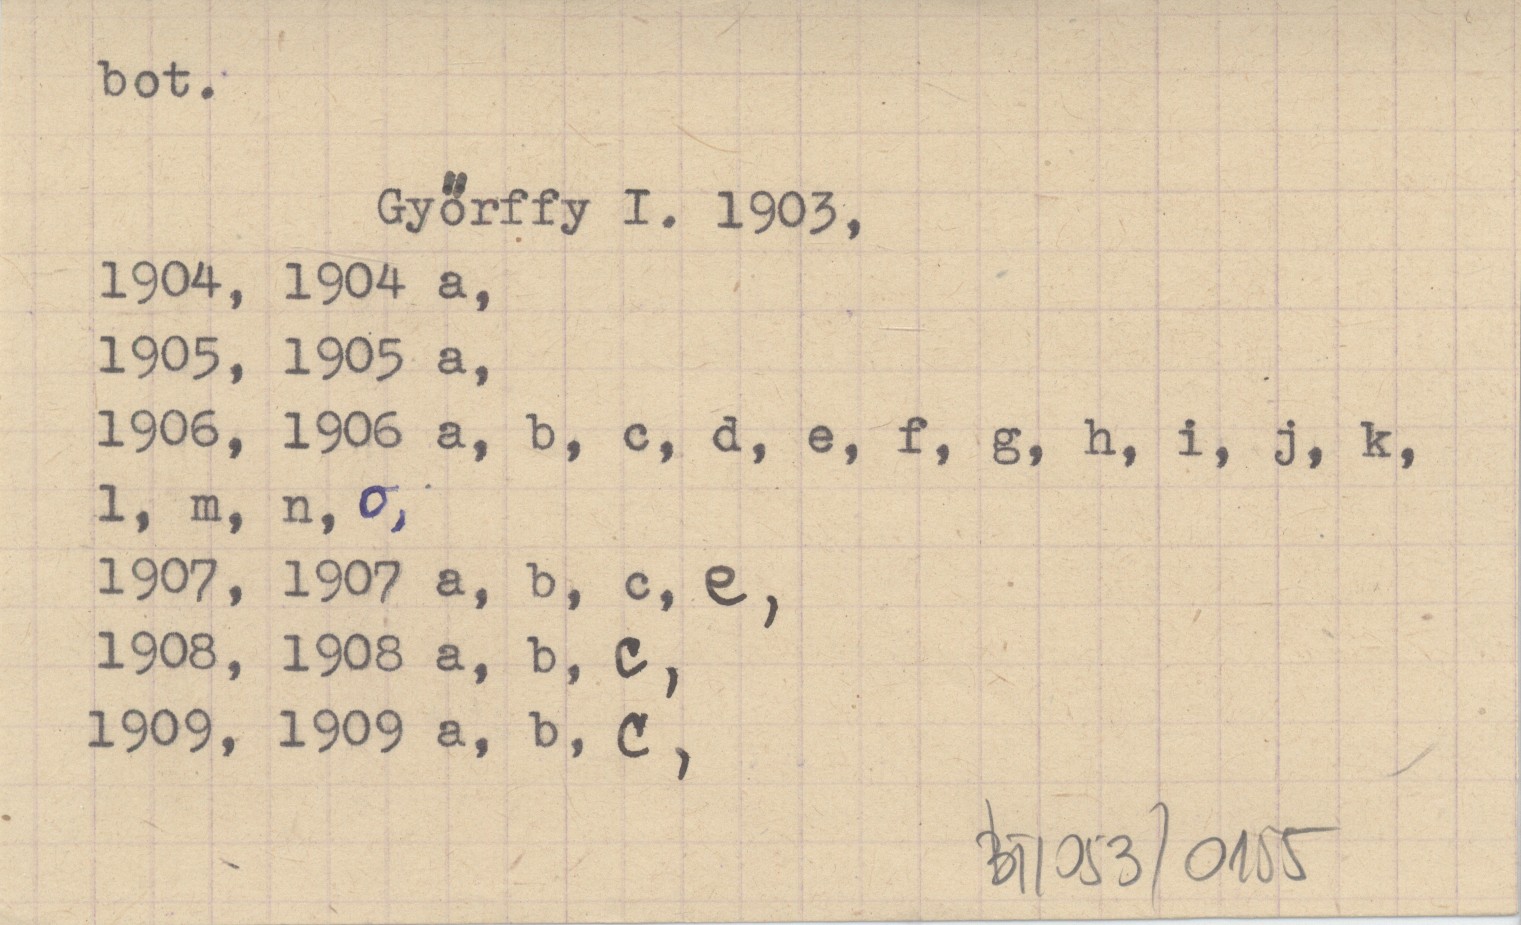 bot.
Győrffy I. 1903,
1904, 1904 a,
1905, 1905 a,
1906, 1906 a, b, c, d, e, f, g, h, i, j, k,
l, m, n, o,
1907, 1907 a, b, c, e,
1908, 1908 a, b, c,
1909, 1909 a, b, c,
BT/053/0155